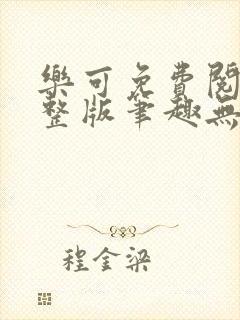 樂可免費閱
整版筆趣無
程金梁